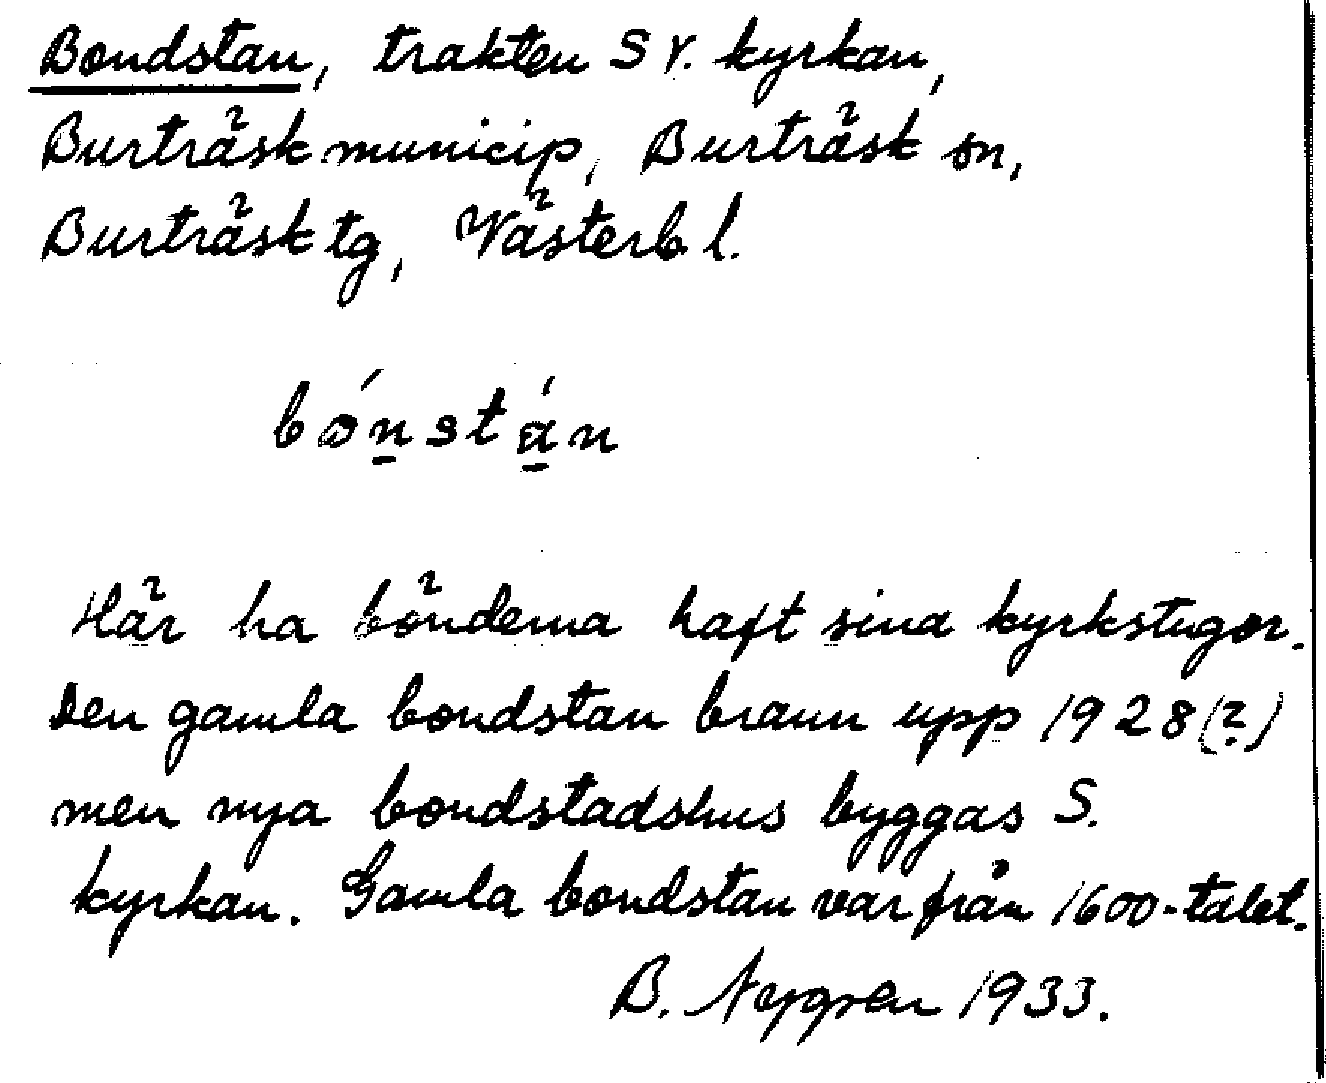 Bondstan, trakten S v. kyrkan,
Burträsk municip, Burträsk sn,
Burträsk tg, Västerb l.
bónstán
Här ha bönderna haft sina kyrkstugor.
Den gamla bondstan brann upp 1928(?)
men nya bondstadshus byggas S.
kyrkan. Gamla bondstan var från 1600-talet.
B. Nygren 1933.